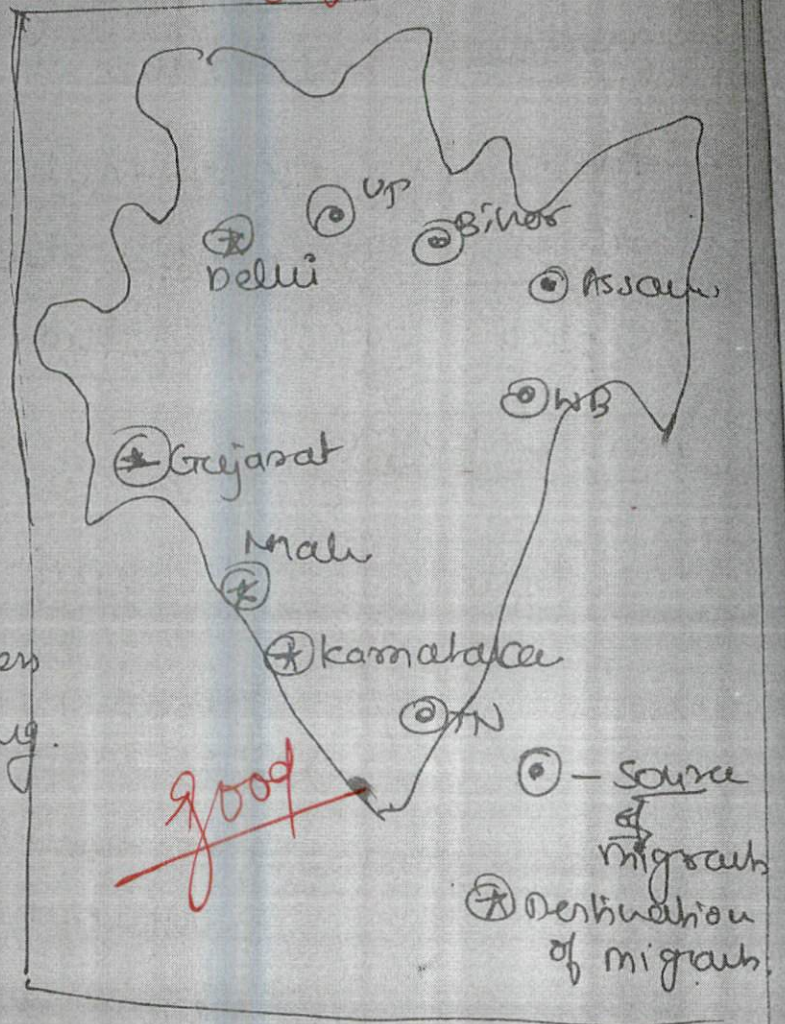 UP
Bihar
Delhi
Assam
WB
Gujarat
Mah
Karnataka
TN
good
- Source
of
migrants
Destination
of migrants